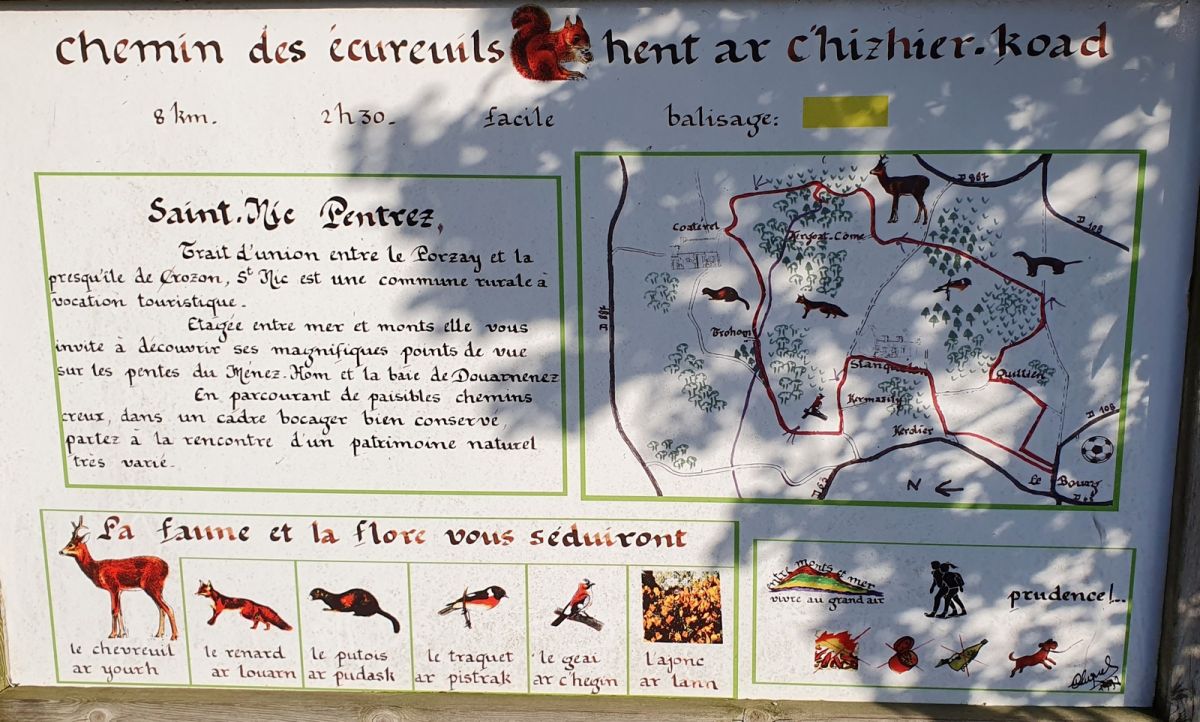 chemin des écureuils hent ar c'hizhier-koad
8 km. 2h30. facile balisage:
Saint.Nic Pentrez,
Trait d'union entre le Porzay et la
presqu'île de Crozon, St Nic est une commune rurale à
vocation touristique.
Etagée entre mer et monts elle vous
invite à découvrir ses magnifiques points de vue
sur les pentes du Ménez.Hom et la baie de Douarnenez
En parcourant de paisibles chemins
creux, dans un cadre bocager bien conservé,
partez à la rencontre d'un patrimoine naturel
très varié.
D 887
D 108
Coaterel
D 887
Trohom
Stanquelen
Quillien
Kermasily
Kerdier
D 108
D 63
N
Le Bourg
D 63
La faune et la flore vous séduiront
le chevreuil
ar yourh
le renard
ar louarn
le putois
ar pudask
le traquet
ar pistrak
le geai
ar c'hegin
l'ajonc
ar lann
entre monts et mer
vivre au grand air
prudence!..